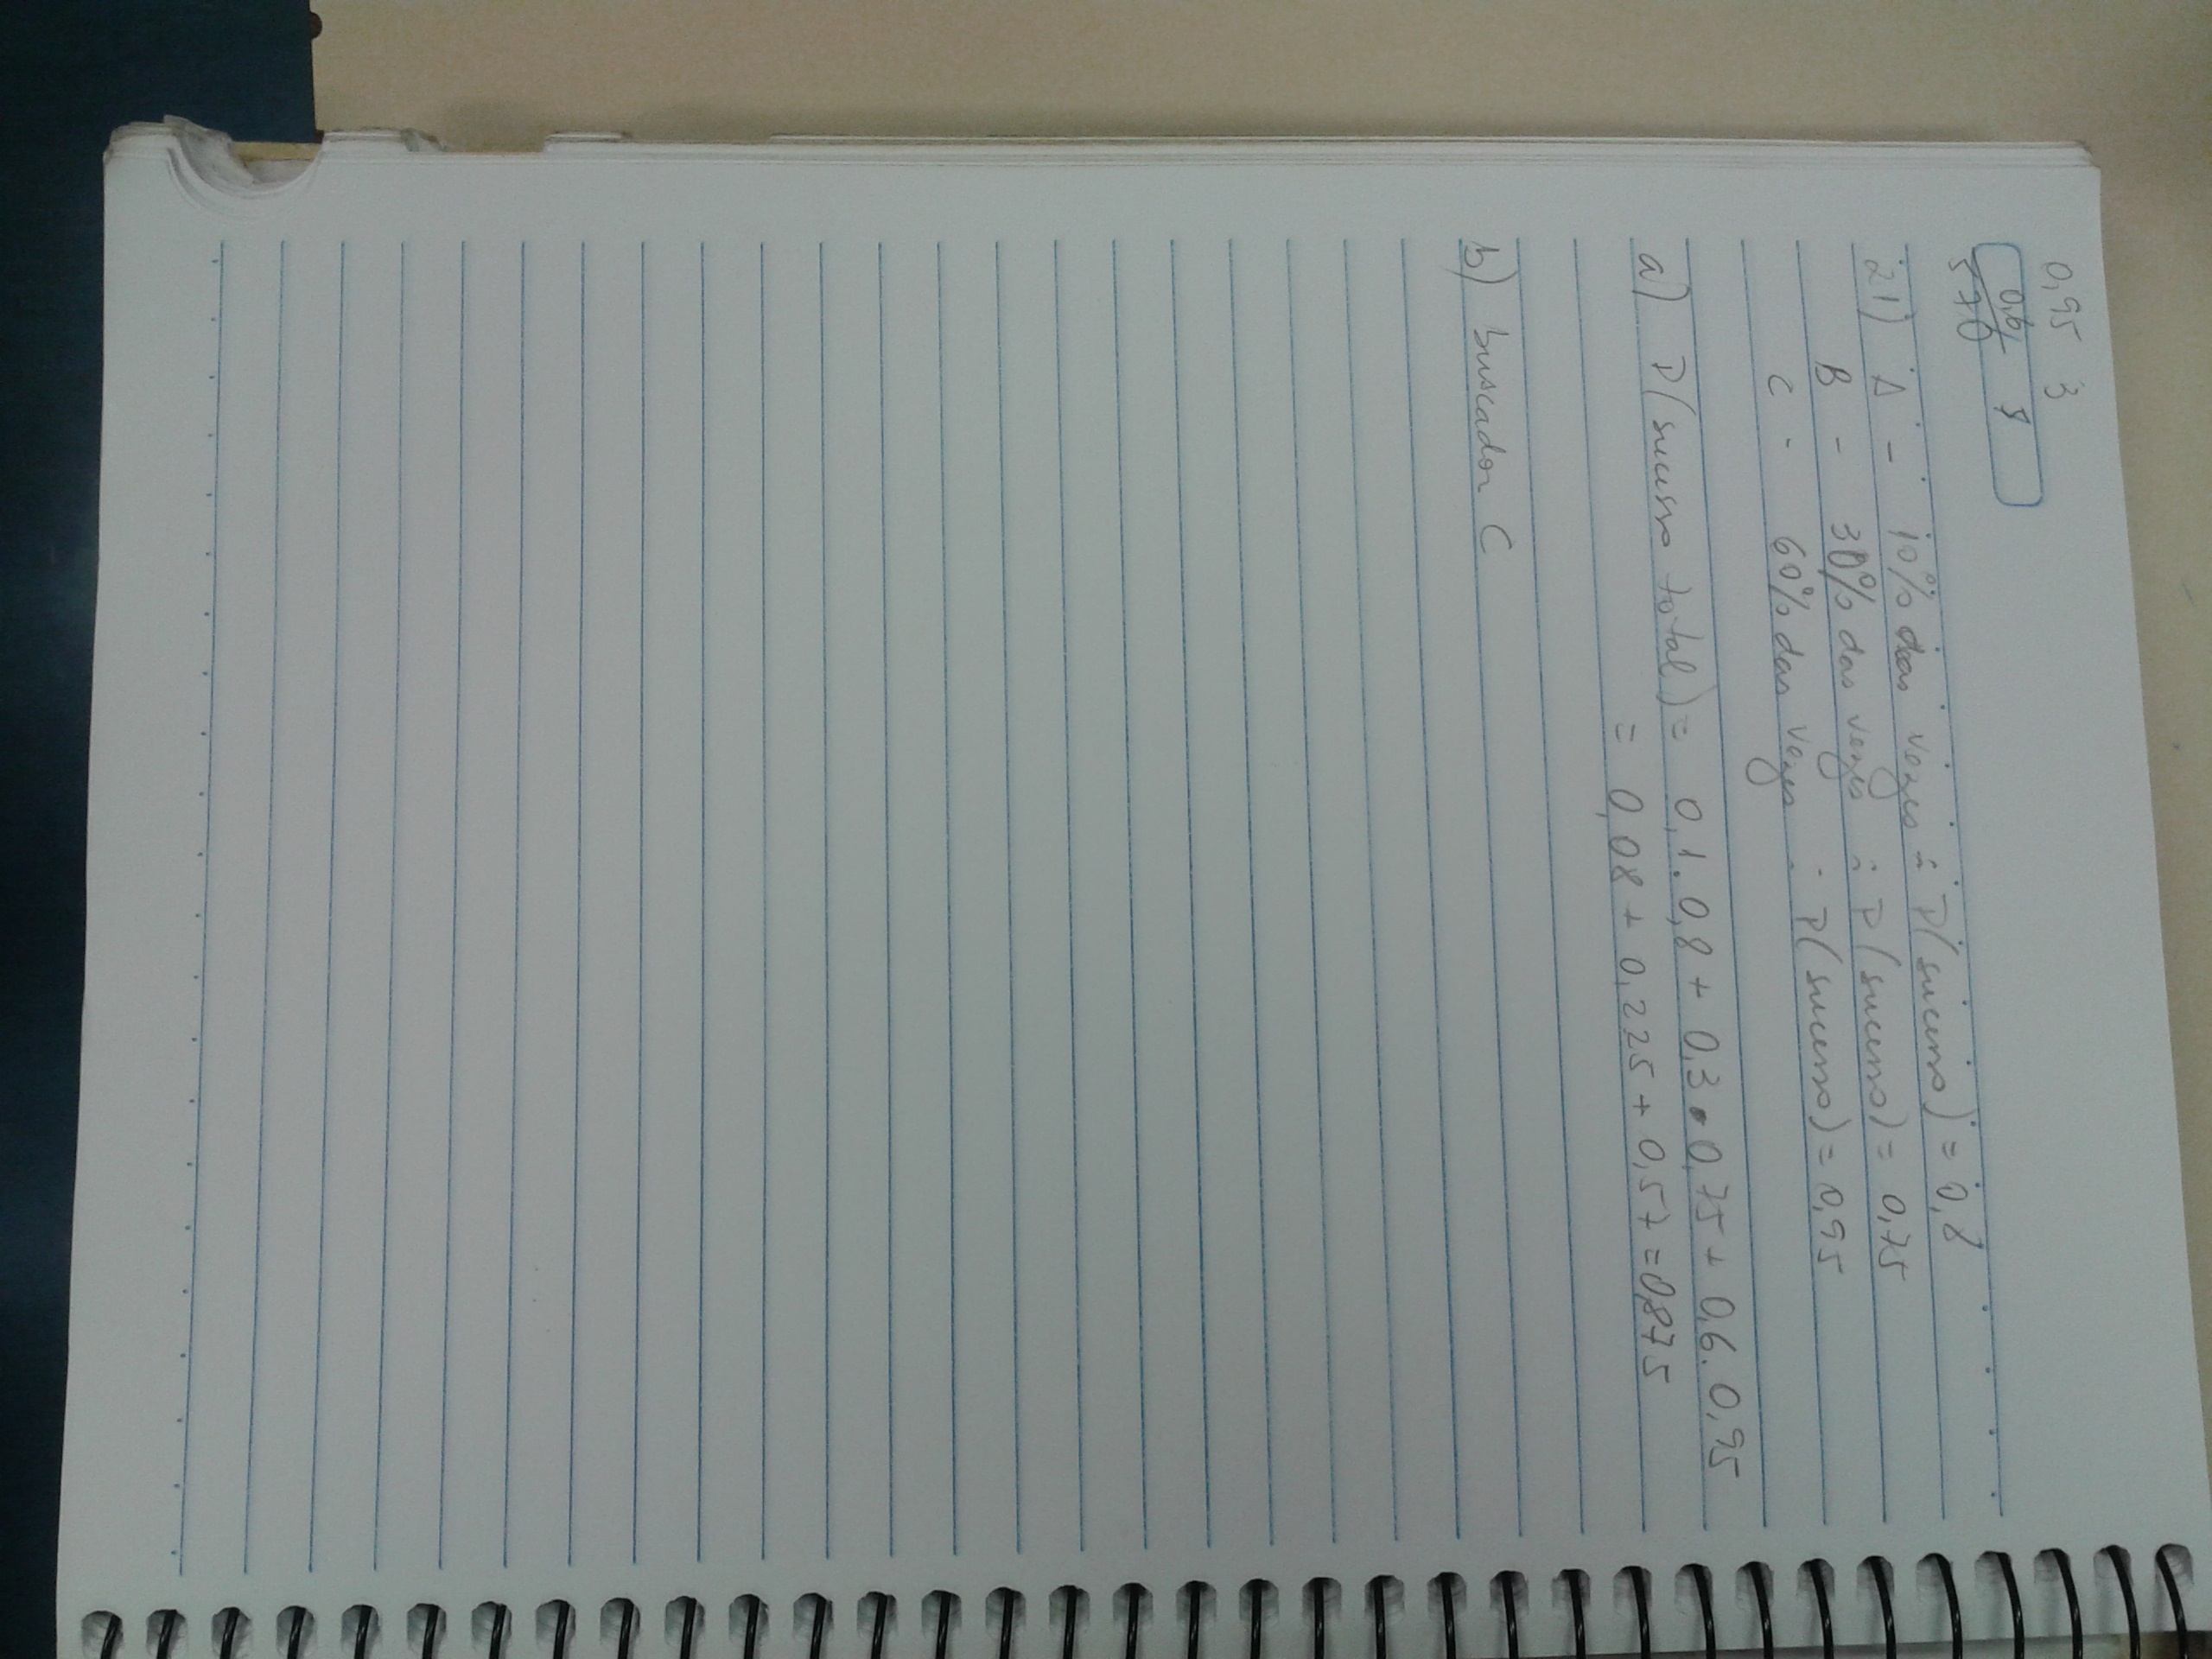 0,95 3
0,6 1
570
21) A - 10% das vezes ∴ P(sucesso) = 0,8
B - 30% das vezes ∴ P(sucesso) = 0,75
C - 60% das vezes ∴ P(sucesso) = 0,95
a) P(sucesso total) = 0,1.0,8 + 0,3.0,75 + 0,6.0,95
= 0,08 + 0,225 + 0,57 = 0,875
b) buscador C